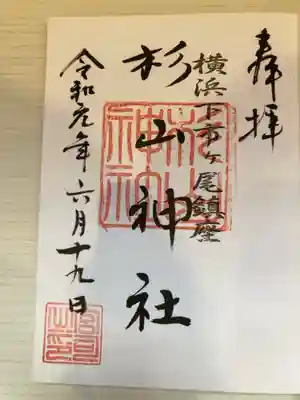 奉拝
横浜下市ヶ尾鎮座
杉山神社
令和元年六月十九日